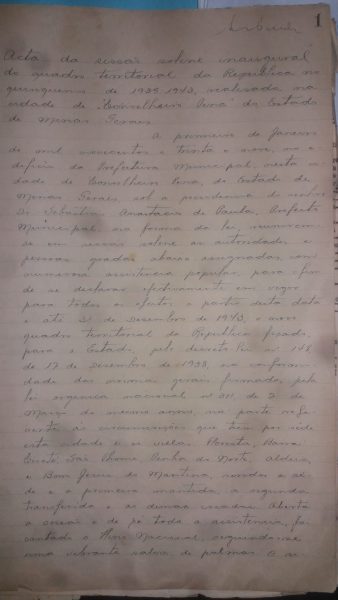 1
Acta da sessão solene inaugural
do quadro territorial da Republica no
quinquennio de 1939-1943, realisada na
cidade de "Conselheiro Pena" do Estado
de Minas Geraes
A primeiro de Janeiro
de mil novecentos e trinta e nove, no e
dificio da Prefeitura Municipal, nesta ci
dade de Conselheiro Pena, do Estado de
Minas Geraes, sob a presidencia do senhor
Dr. Sebastião Anastacio de Paula, Prefeito
Municipal, na forma da lei, reuniram-
se em sessão solene as autoridades e
pessoas gradas abaixo assignadas, com
numerosa assistencia popular, para fim
de se declarar efectivamente em vigor
para todos os efeitos a partir desta data
e até 31 de Dezembro de 1943, o novo
quadro territorial da Republica fixado,
para o Estado, pelo decreto-lei nº 148,
de 17 de Dezembro de 1938, na conformi
dade das normas gerais firmadas, pela
lei organica nacional nº 311, de 2 de
Março do mesmo anno, na parte refe
rente ás circunscrições que têm por séde
esta cidade e as vilas. Bonita, Barra
Cuieté, São Thomé, Penha do Norte, Aldeia,
e Bom Jesus do Mantena, sendo
e a primeira mantida, a segunda
transferida e as demais creadas. Aberta
a sessão e de pé toda a assistencia, foi
cantado o Hino Nacional, seguindo-se
uma vibrante salva de palmas. O sr.